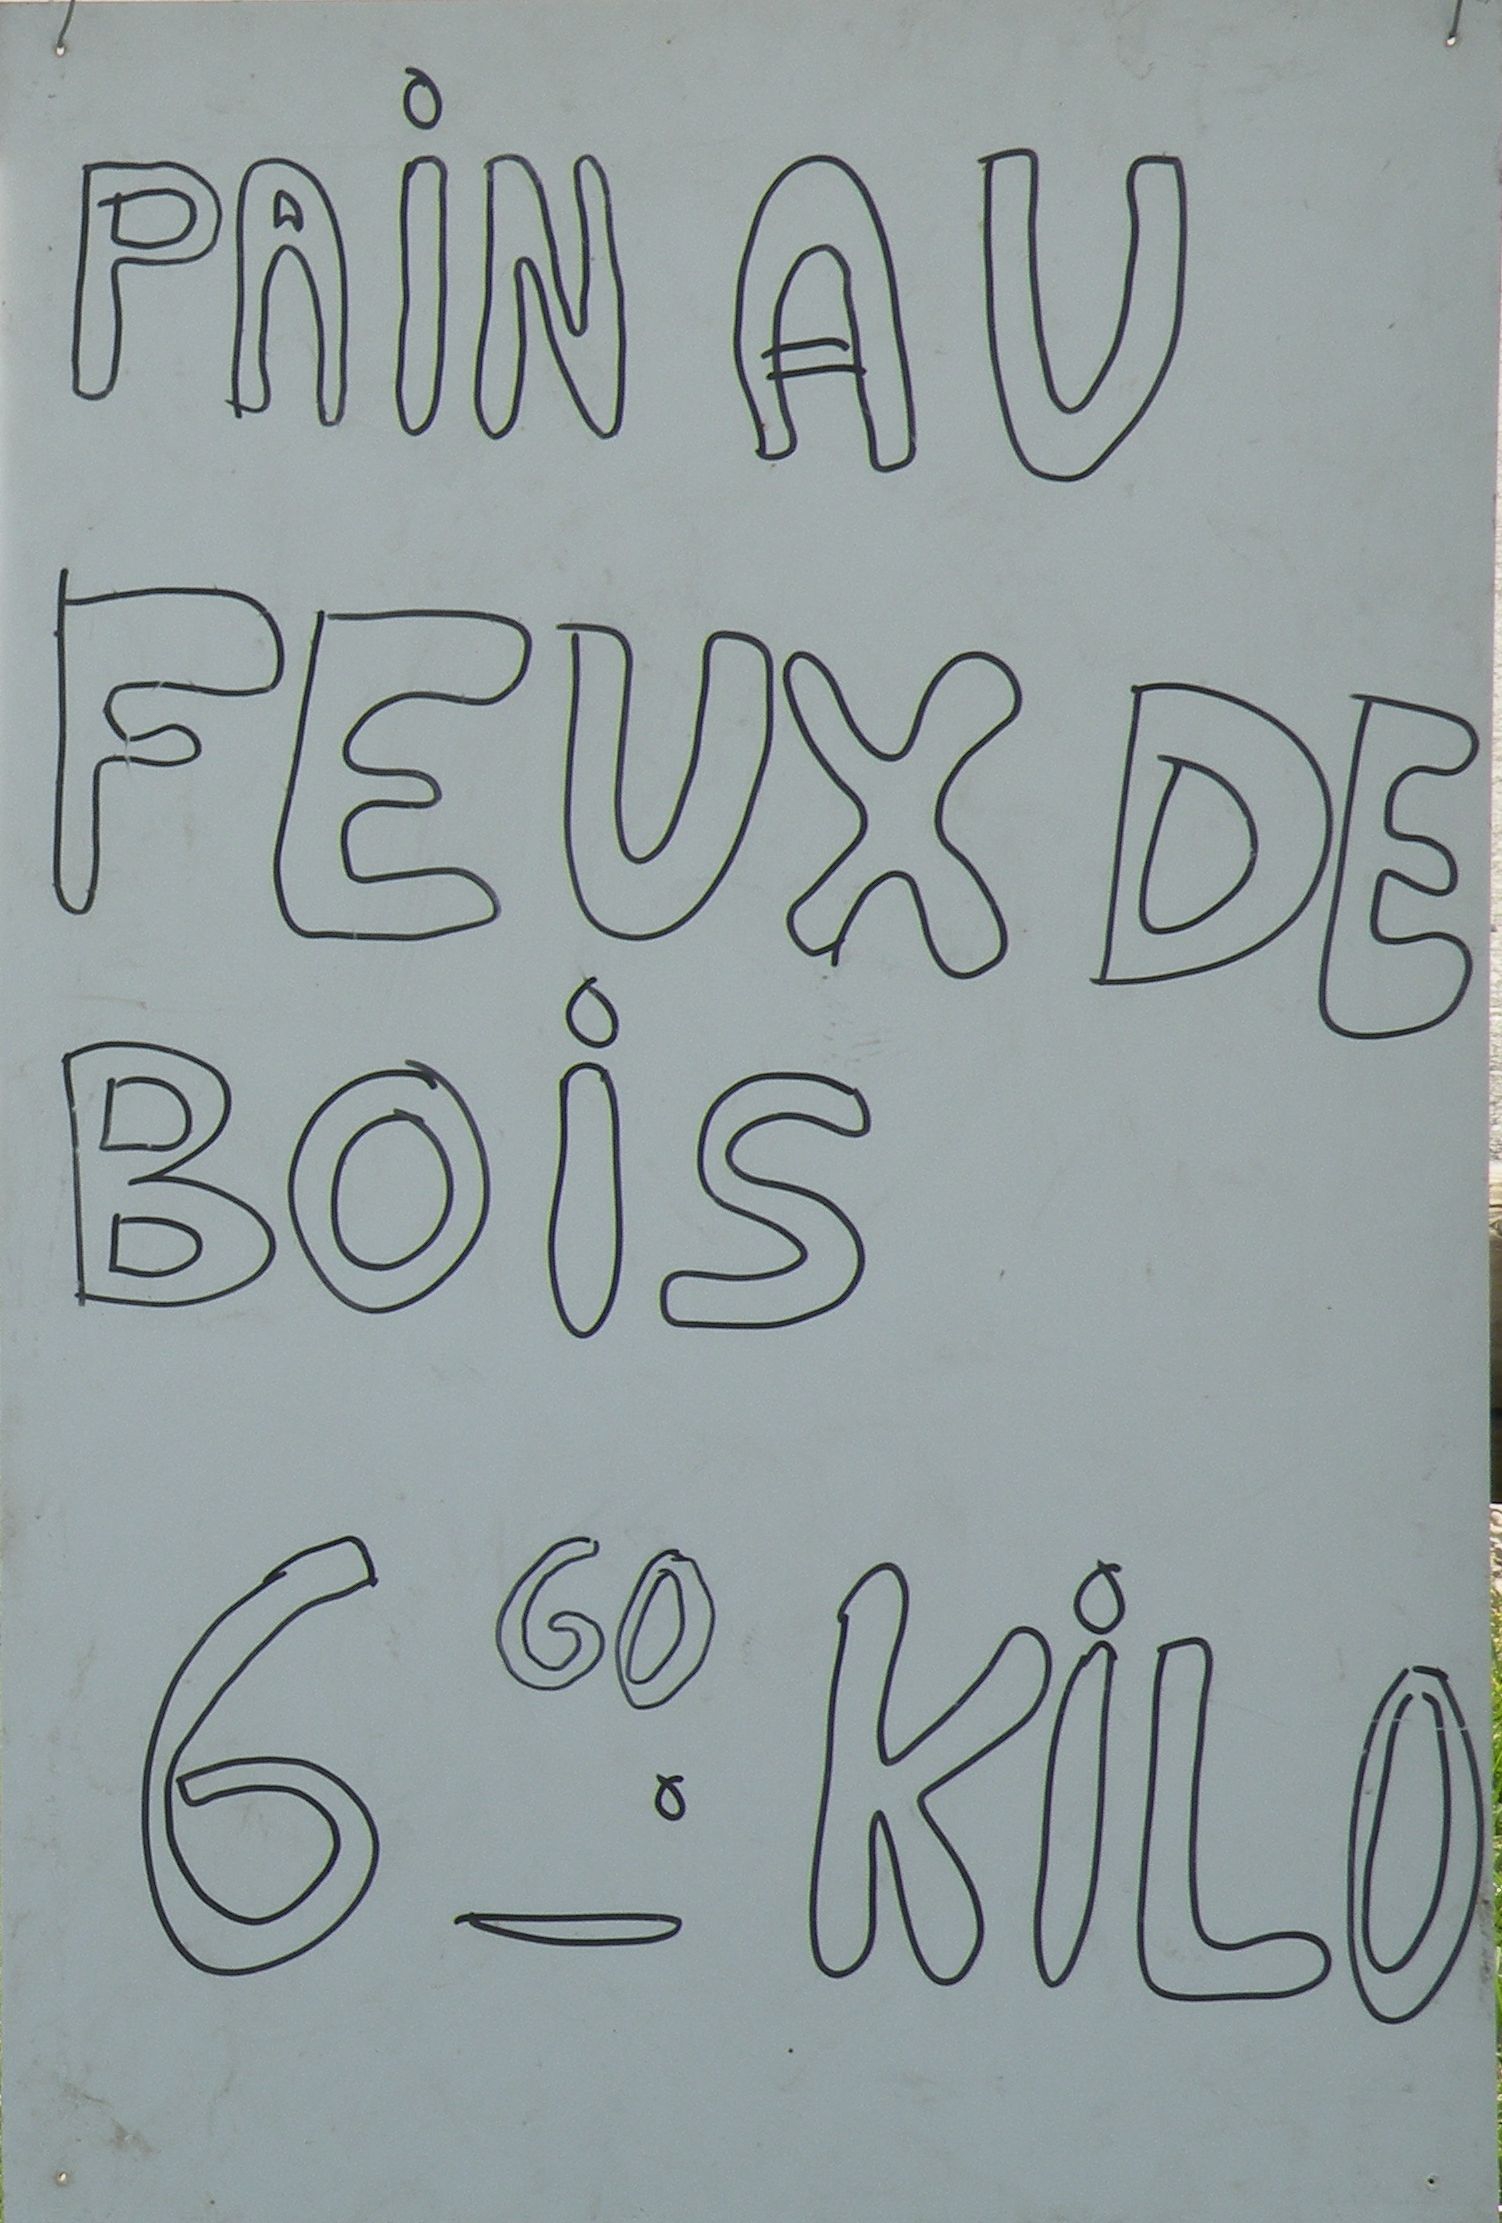 PAiN AU
FEUX DE
BOiS
6 60 KiLO